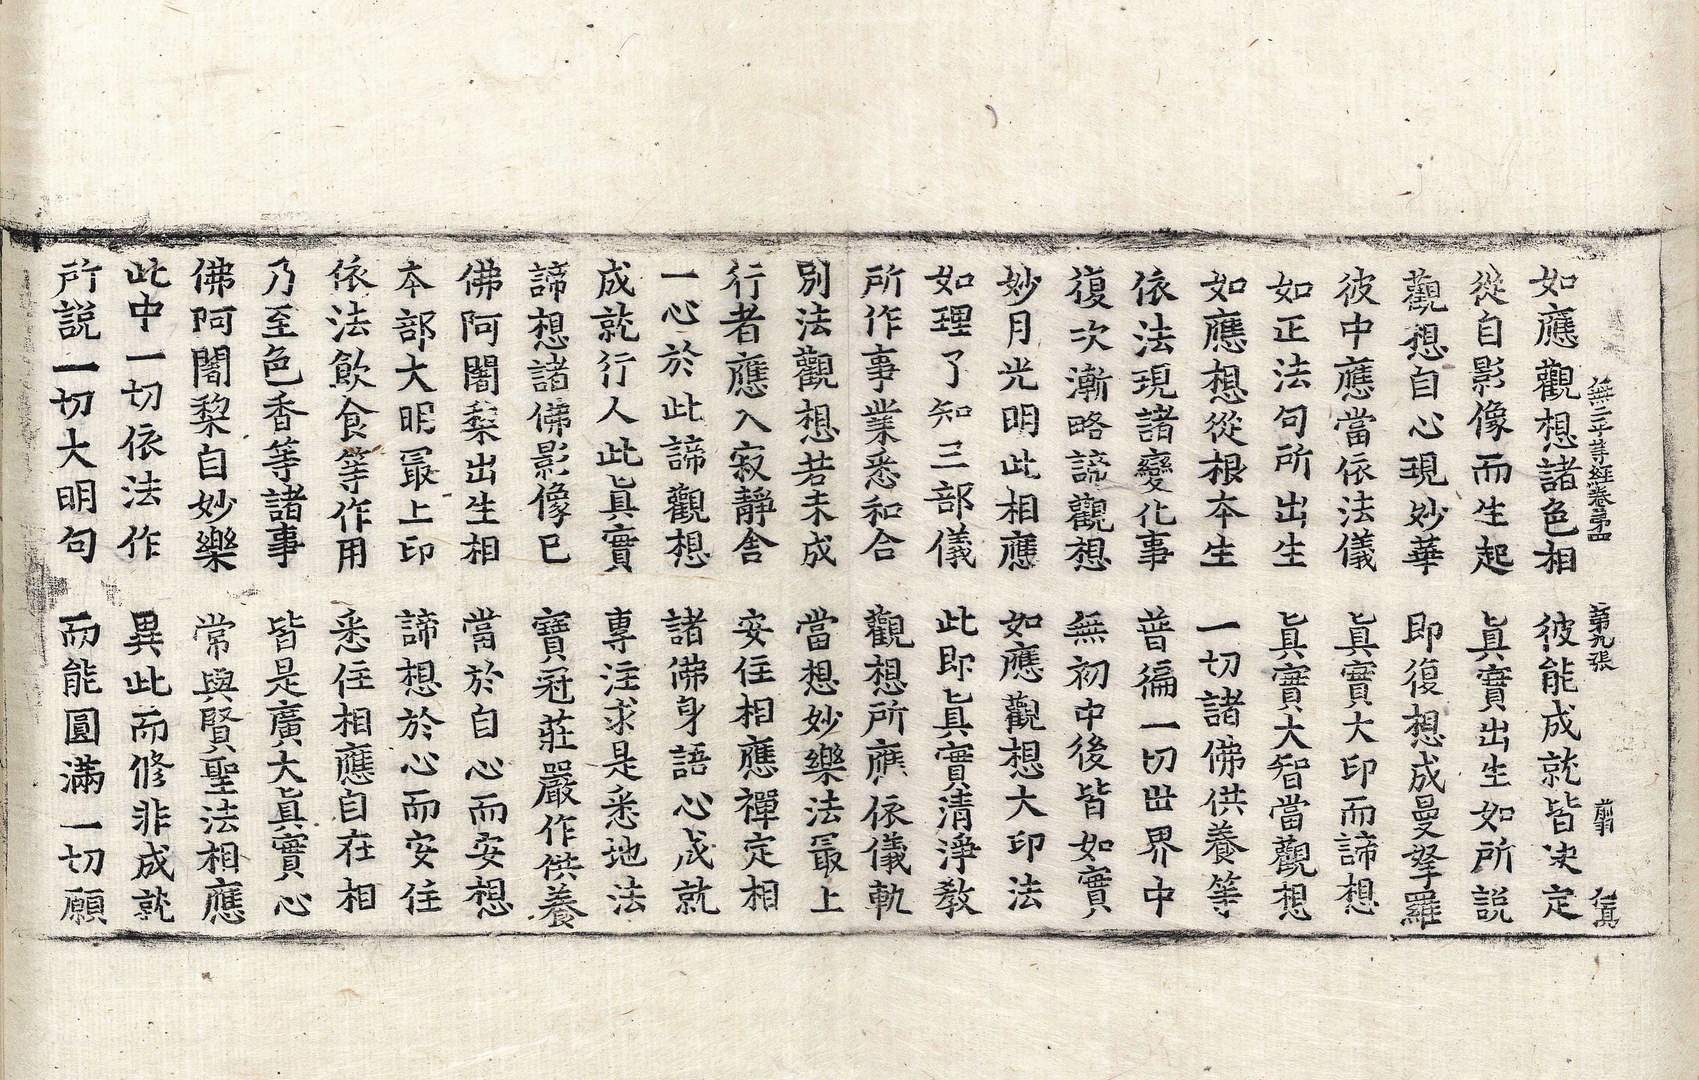 無二平等經卷第四 第九張 翦 仁寫
如應觀想諸色相 彼能成就皆决定
從自影像而生起 眞實出生如所說
觀想自心現妙華 即復想成曼拏羅
彼中應當依法儀 眞實大印而諦想
如正法句所出生 眞實大智當觀想
如應想從根本生 一切諸佛供養等
依法現諸變化事 普徧一切世界中
復次漸略諦觀想 無初中後皆如實
妙月光明此相應 如應觀想大印法
如理了知三部儀 此即眞實清淨教
所作事業悉和合 觀想所應依儀軌
別法觀想若未成 當想妙樂法最上
行者應入寂靜舍 安住相應禪定相
一心於此諦觀想 諸佛身語心成就
成就行人此眞實 專注求是悉地法
諦想諸佛影像已 寶冠莊嚴作供養
佛阿闍梨出生相 當於自心而安想
本部大明最上印 諦想於心而安住
依法飲食等作用 悉住相應自在相
乃至色香等諸事 皆是廣大眞實心
佛阿闍梨自妙樂 常與賢聖法相應
此中一切依法作 異此而修非成就
所說一切大明句 而能圓滿一切願